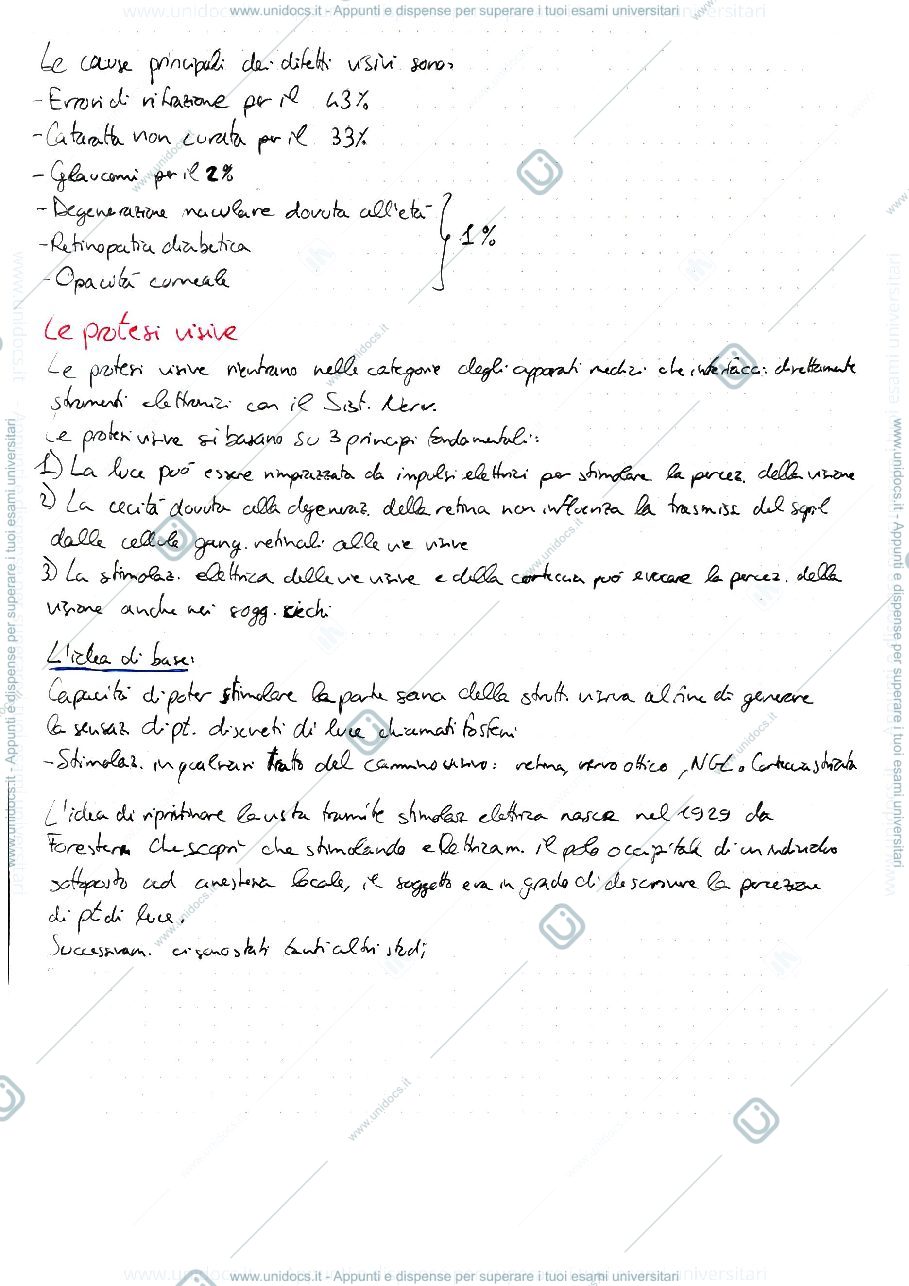 www.unidocs.it - Appunti e dispense per superare i tuoi esami universitari
Le cause principali dei difetti visivi sono:
- Errori di rifrazione per il 43%
- Cataratta non curata per il 33%
- Glaucomi per il 2%
- Degenerazione maculare dovuta all'età
- Retinopatia diabetica
1%
- Opacità corneale
Le protesi visive
Le protesi visive rientrano nelle categorie degli apparati medici che interfacci: direttamente
strumenti elettronici con il Sist. Nerv.
Le protesi visive si basano su 3 principi fondamentali:
1) La luce può essere rimpiazzata da impulsi elettrici per stimolare la percez. della visione
2) La cecità dovuta alla degeneraz. della retina non influenza la trasmiss del
dalle cellule gang. retinali alle vie visive
3) La stimolaz. elettrica delle vie visive e della corteccia può evocare la percez. della
visione anche nei sogg. ciechi
L'idea di base:
Capacità di poter stimolare la parte sana della strutt. visiva al fine di generare
la sensaz di pt. discreti di luce chiamati fosfeni
- Stimolaz. in qualsiasi tratto del cammino visivo: retina, nervo ottico, NGL o Corteccia striata
L'idea di ripristinare la vista tramite stimolaz elettrica nasce nel 1929 da
che scoprì che stimolando elettricam. il polo occipitale di un individuo
sottoposto ad anestesia locale, il soggetto era in grado di descrivere la percezione
di pt di luce.
Successivam. ci sono stati tanti altri studi
www.unidocs.it - Appunti e dispense per superare i tuoi esami universitari